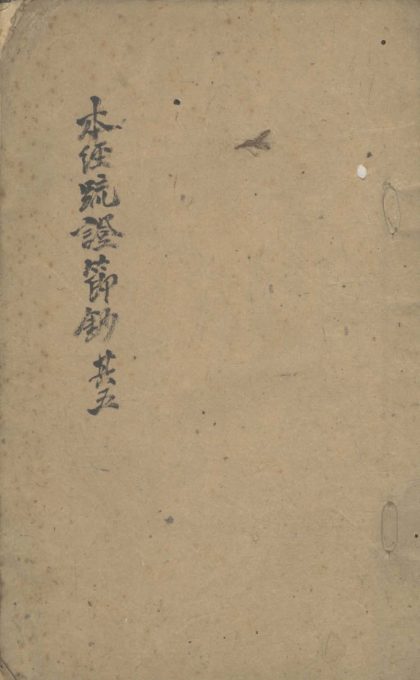 本經疏證節鈔 其五